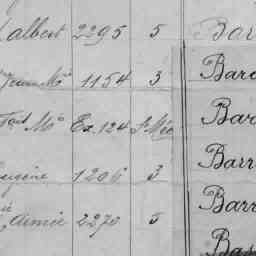 albert 2295 5 Bar
Jeanne Mie 1154 3 Bard
Mie Ex. 124 Bar
Eugène 1206 3 Barr
Aimée 2270 5 Barr
Bas